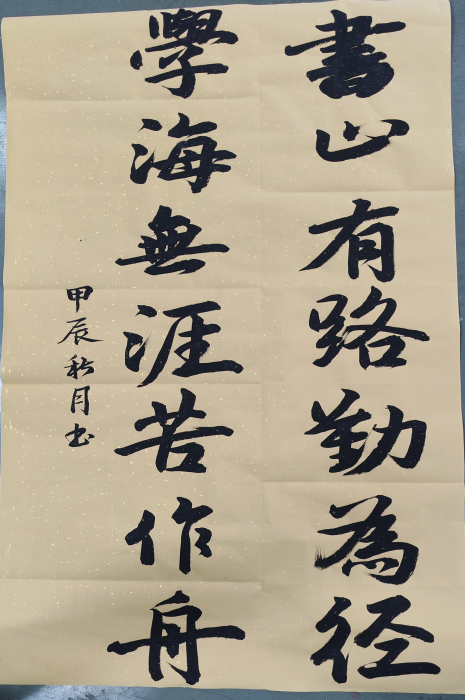 書山有路勤為径
學海無涯苦作舟
甲辰秋月书